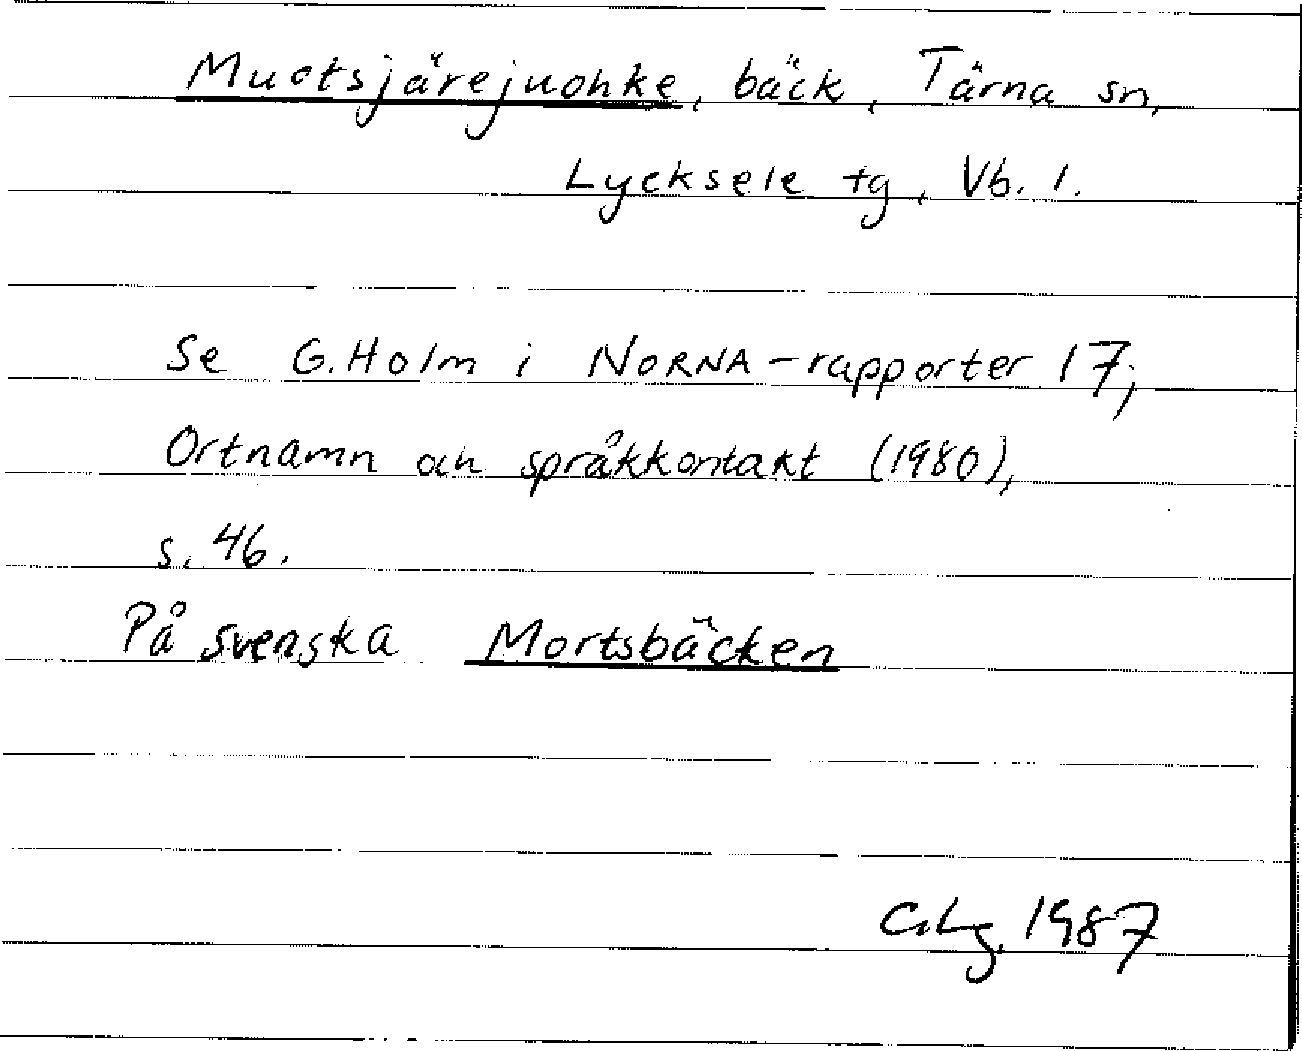 Muotsjärejuohke, bäck, Tärna sn,
Lycksele tg, Vb. l.
Se G. Holm i NORNA-rapporter 17;
Ortnamn och språkkontakt (1980),
s. 46.
På svenska Mortsbäcken
C.Lg. 1987